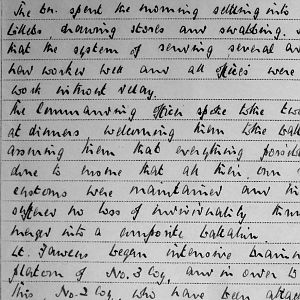 The bn. spent the morning settling into
billets, drawing stores and swabbing.
that the system of sending several ad
have worked well and all offices were
work without delay.
The Commanding Officer spoke to the two
at dinners welcoming them to the batt
assuring them that everything possible
done to insure that all their own
customs were maintained and
suffered no loss of individuality
merged into a composite battalion.
Lt. Fawcus began intensive training
platoon of No. 3 Coy, and in order to
this No. 2 Coy, who have been attac